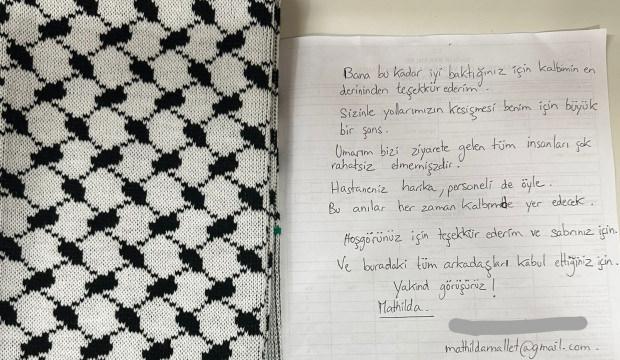 Bana bu kadar iyi baktığınız için kalbimin en
derininden teşekkür ederim.
Sizinle yollarımızın kesişmesi benim için büyük
bir şans.
Umarım bizi ziyarete gelen tüm insanları çok
rahatsiz etmemişzdir.
Hastaneniz harika, personeli de öyle.
Bu anılar her zaman kalbimde yer edecek.
Hoşgörünüz için teşekkür ederim ve sabrınız için.
Ve buradaki tüm arkadaşları kabul ettiğiniz için.
Yakind görüşürüz!
Mathilda.
mathildamallet@gmail.com.